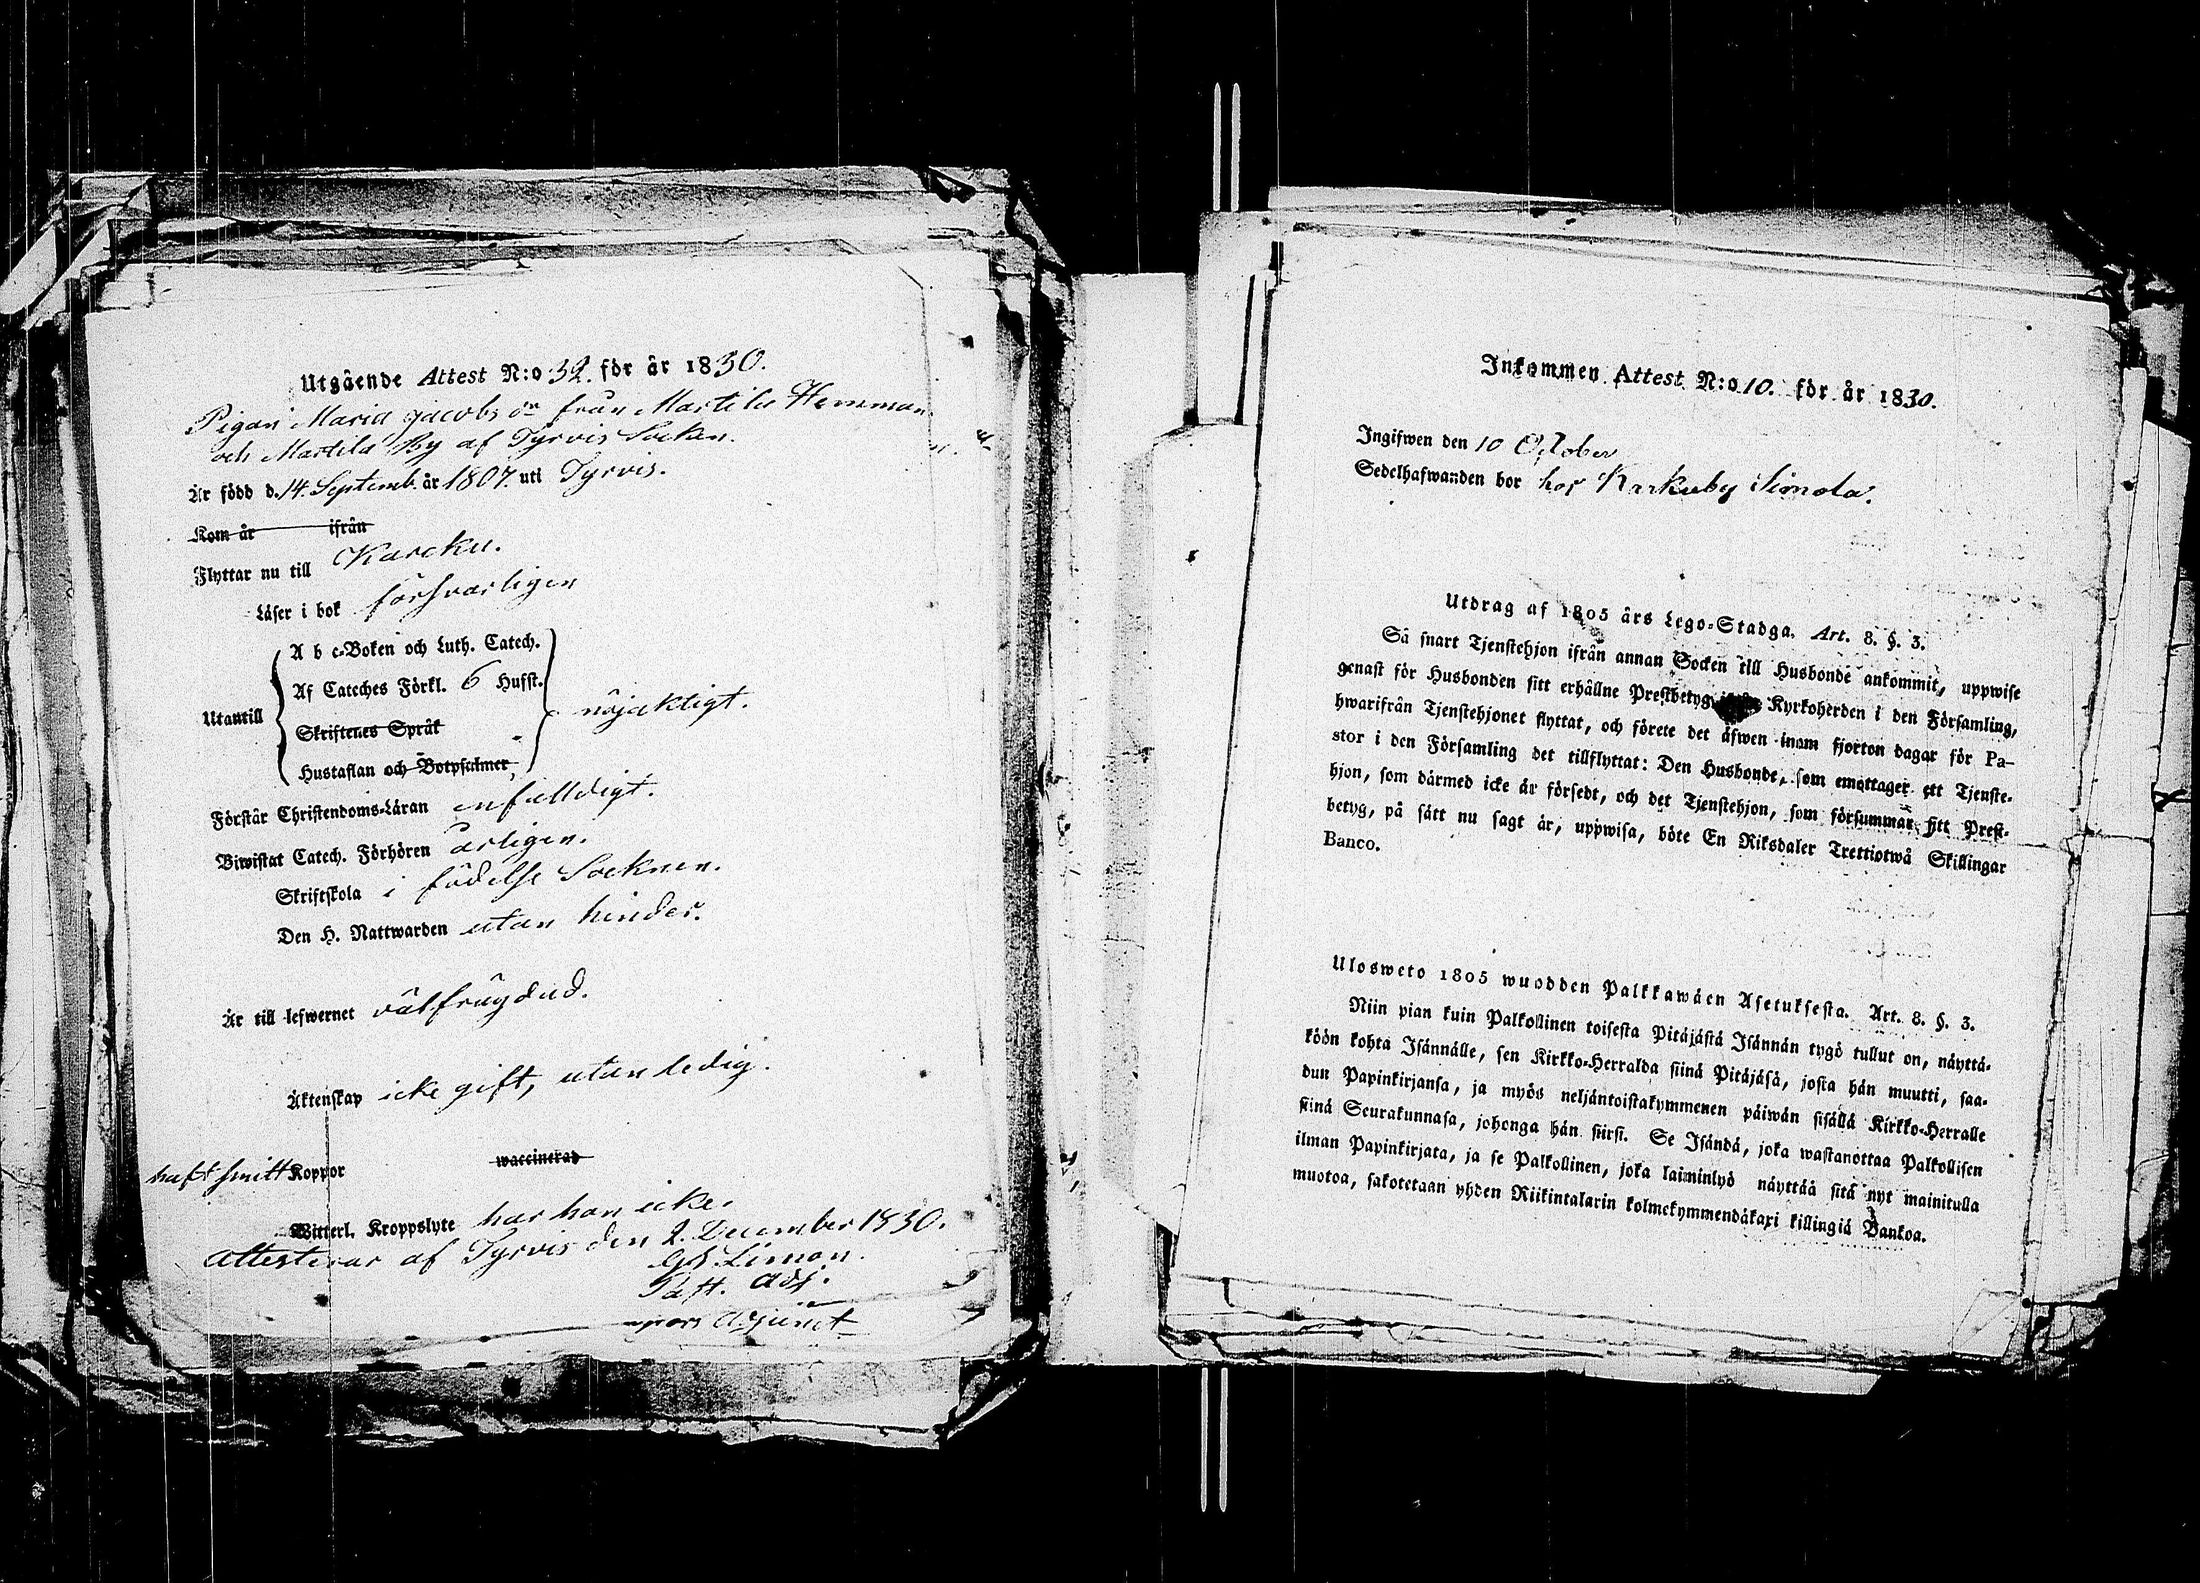 Utgående Attest N:o 32. för år 1830.
Pigan Maria Jacobsdr från Martila Hemman
och Martila By af Tyrvis Socken.
Är född d. 14. Septemb. år 1807. uti Tyrvis.
Kom år ifrån
Flyttar nu till Karcku.
Läser i bok försvarligen
A b c-Boken och Luth. Catech.
Af Cateches Förkl. 6 Hufst.
Utantill nöjaktigt.
Skriftenes Språk
Hustaflan och Botpsalmer
Förstår Christendoms-Läran enfalldigt.
Biwistat Catech. Förhören årligen.
Skriftskola i födelse Socknen.
Den H. Nattwarden utan hinder.
Är till lefwernet välfrägdad.
Äktenskap icke gift, utan ledig.
haft smitt Koppor waccinerad
Witterl. Kroppslyte har hon icke.
Attesterar af Tyrvis den 2. December 1830.
Limon.
Past. Adj.
Adjunct
Inkommen Attest N:o 10. för år 1830.
Ingifwen den 10 October
Sedelhafwanden bor hos Karkuby Simola.
Utdrag af 1805 års Lego-Stadga. Art. 8. §. 3.
Så snart Tjenstehjon ifrån annan Socken till Husbonde ankommit, uppwise
genast för Husbonden sitt erhållne Prestbetyg Kyrkoherden i den Församling,
hwarifrån Tjenstehjonet flyttat, och förete det äfwen inom fjorton dagar för Pa-
stor i den Församling det tillflyttat: Den Husbonde, som emottager ett Tjenste-
hjon, som därmed icke är försedt, och det Tjenstehjon, som försummar sitt Prest-
betyg, på sätt nu sagt är, uppwisa, böte En Riksdaler Trettiotwå Skillingar
Banco.
Ulosweto 1805 wuodden Palkkawäen Asetuksesta. Art. 8. §. 3.
Niin pian kuin Palkollinen toisesta Pitäjästä Isännän tygö tullut on, näyttä-
köön kohta Isännälle, sen Kirkko-Herralda siinä Pitäjäsä, josta hän muutti, saa-
dun Papinkirjansa, ja myös neljäntoistakymmenen päiwän sisällä Kirkko-Herralle
siinä Seurakunnasa, johonga hän siirsi. Se Isändä, joka wastanottaa Palkollisen
ilman Papinkirjata, ja se Palkollinen, joka laiminlyö näyttää sitä nyt mainitulla
muotoa, sakotetaan yhden Riikintalarin kolmekymmendäkaxi killingiä Bankoa.